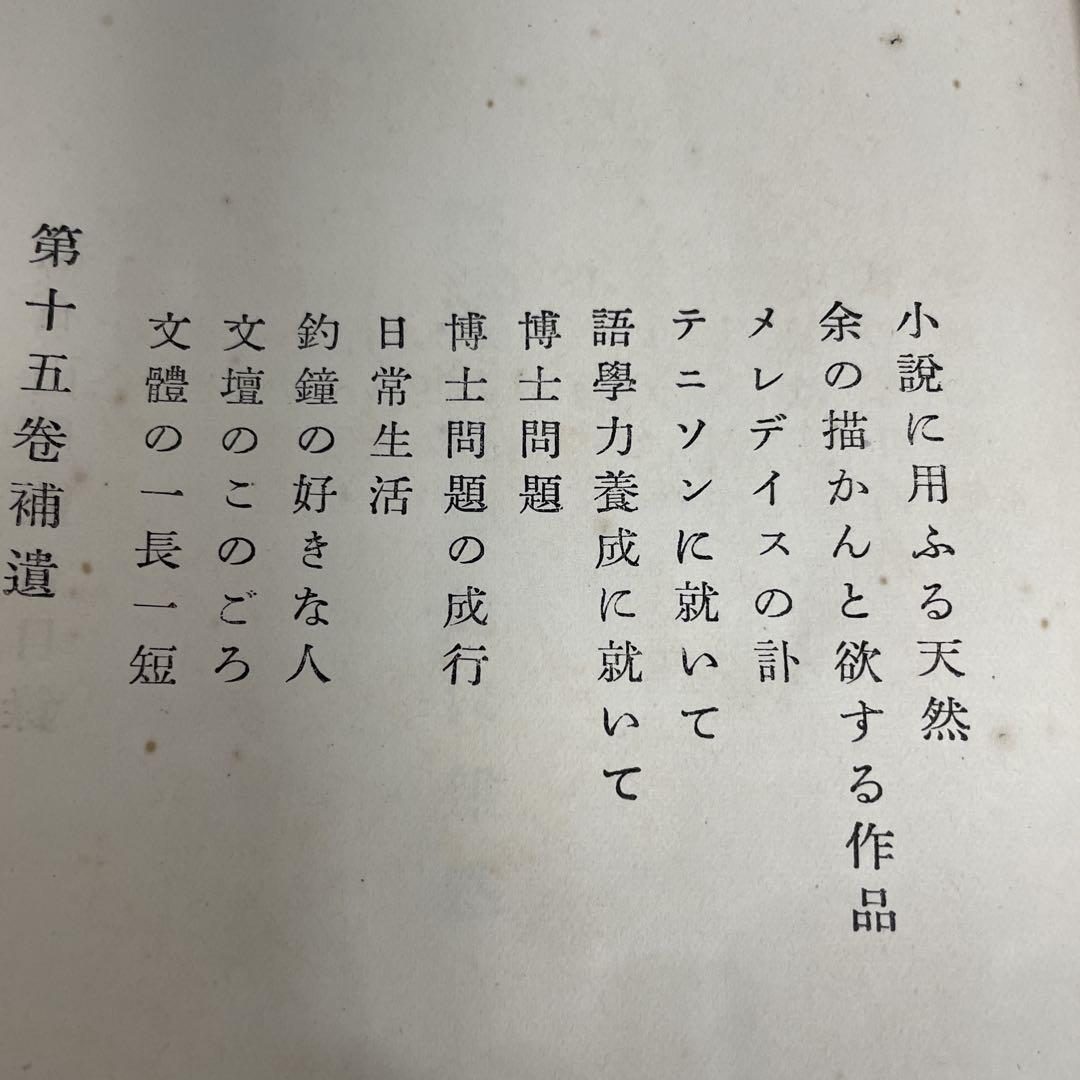 小說に用ふる天然
余の描かんと欲する作品
メレデイスの訃
テニソンに就いて
語學力養成に就いて
博士問題
博士問題の成行
日常生活
釣鐘の好きな人
文壇のこのごろ
文體の一長一短
第十五卷補遺